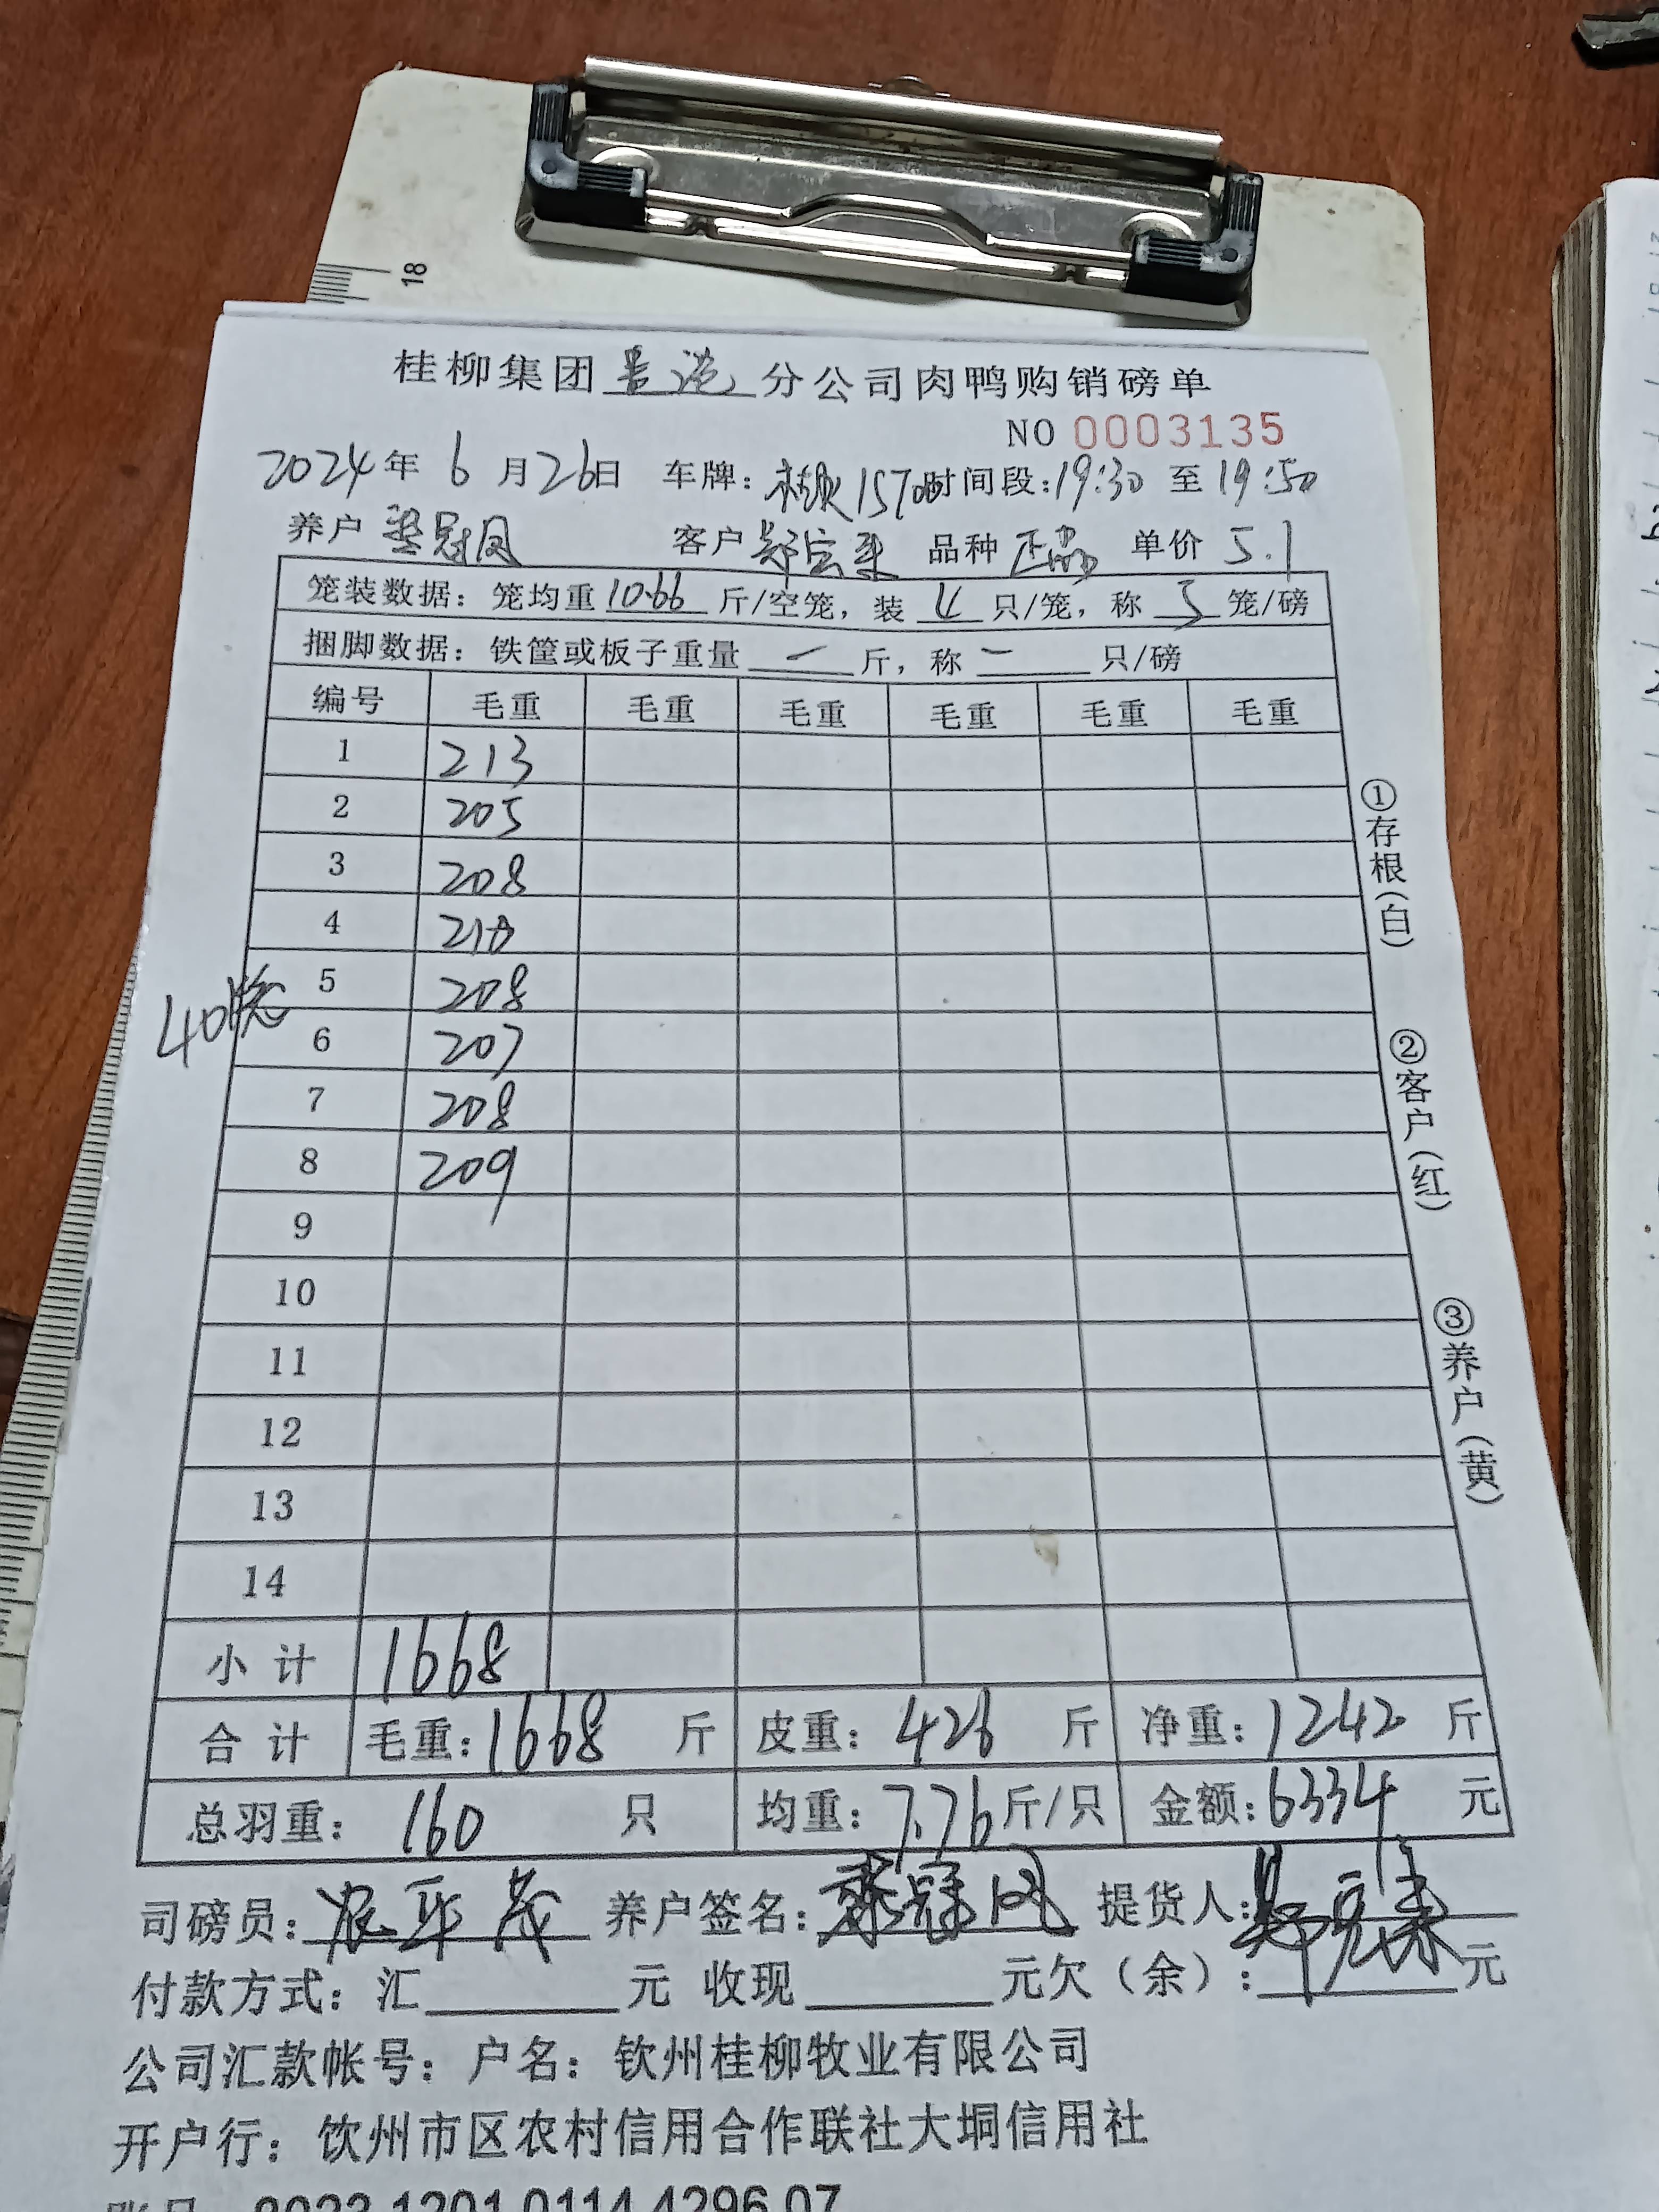 18
桂柳集团贵港分公司肉鸭购销磅单
NO 0003135
2024年 6 月26日 车牌: 157 时间段:19:30 至 19:50
养户 梁冠凤 客户 郑宏来 品种 正品 单价 5.1
笼装数据: 笼均重 10.66 斤/空笼, 装 4 只/笼, 称 5 笼/磅
捆脚数据: 铁筐或板子重量 一 斤, 称 一 只/磅
编号 毛重 毛重 毛重 毛重 毛重 毛重
1 213
2 205
3 208
4 210
5 208
40笼
6 207
7 208
8 209
9
10
11
12
13
14
小 计 1668
合 计 毛重: 1668 斤 皮重: 426 斤 净重: 1242 斤
总羽重: 160 只 均重: 7.76 斤/只 金额: 6334 元
司磅员: 养户签名: 梁冠凤 提货人: 郑宏来
付款方式: 汇 元 收现 元欠(余): 元
公司汇款帐号: 户名: 钦州桂柳牧业有限公司
开户行: 饮州市区农村信用合作联社大垌信用社
账号 8023 1201 0114 4296 07
①存根(白)
②客户(红)
③养户(黄)